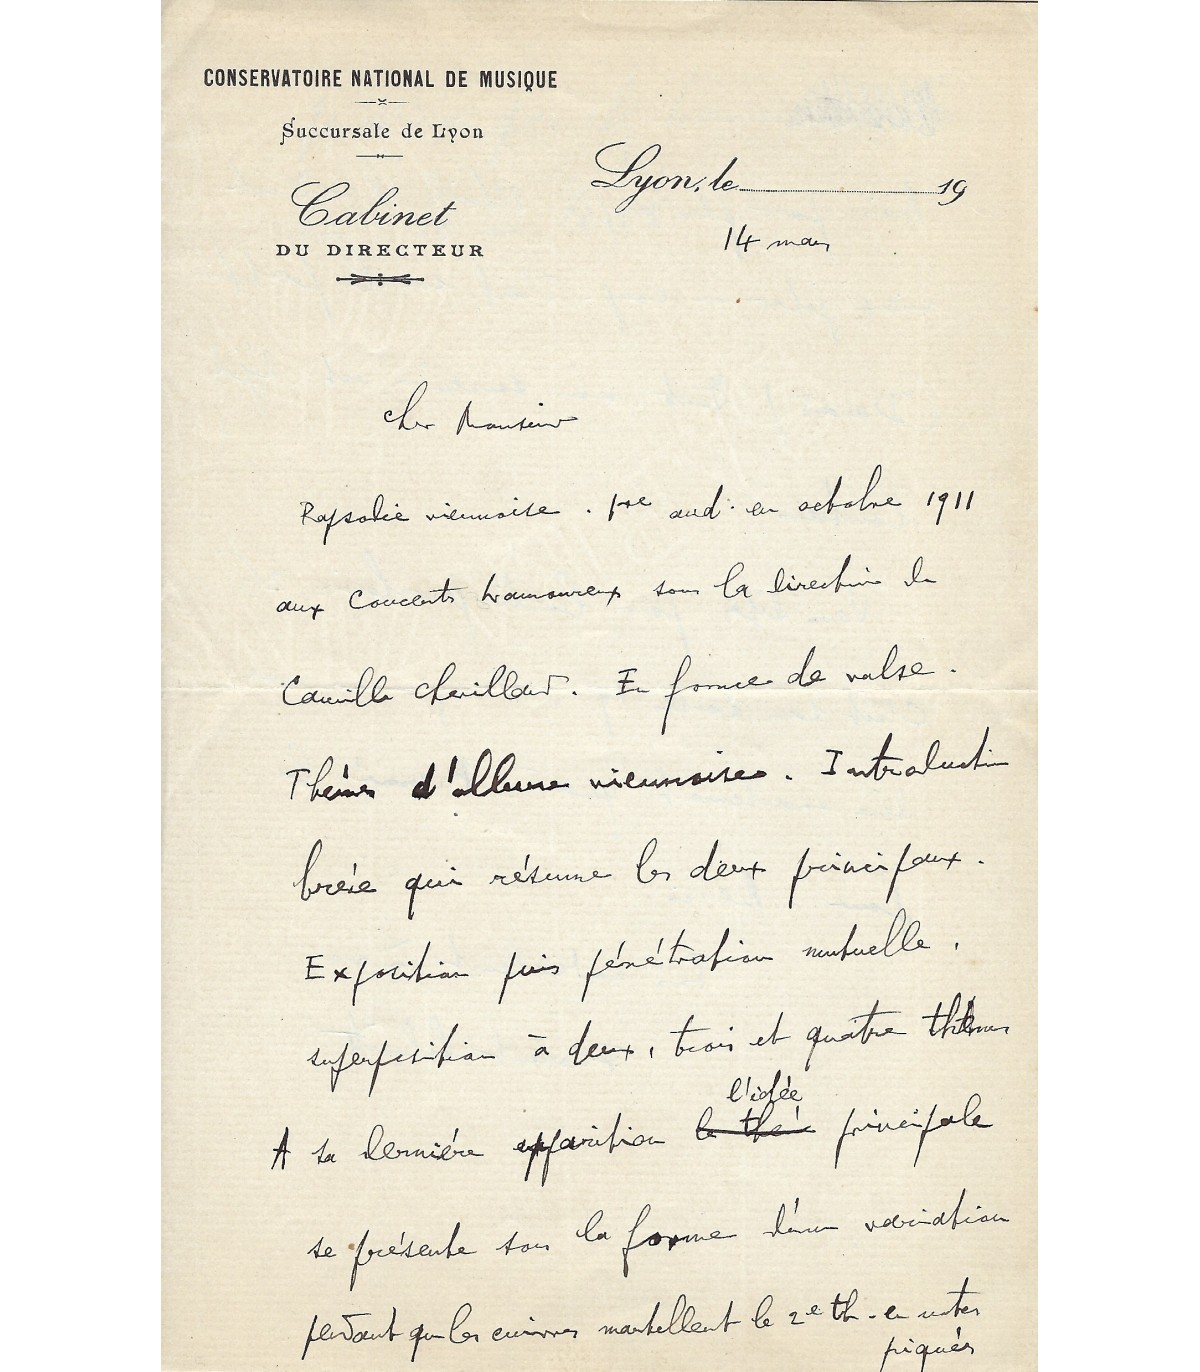 CONSERVATOIRE NATIONAL DE MUSIQUE
Succursale de Lyon
Cabinet
DU DIRECTEUR
Lyon, le 19
14 mars
Cher Monsieur
Rapsodie viennoise. 1re aud. en octobre 1911
aux Concerts Lamoureux sous la direction de
Camille Chevillard. En forme de valse.
Thèmes d'allure viennoise. Introduction
brève qui résume les deux principaux.
Exposition puis pénétration mutuelle,
superposition à deux, trois et quatre thèmes
l'idée
A sa dernière apparition le thè principale
se présente sous la forme d'une variation
pendant que les cuivres martellent le 2e th. en notes
piqués